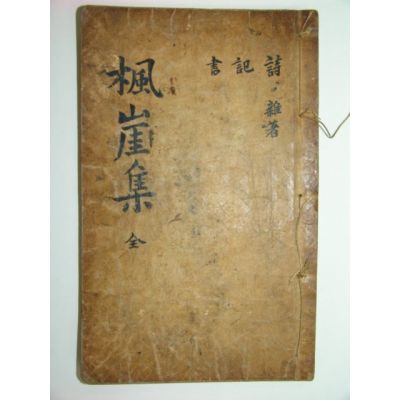 詩 雜著
記
書
楓崖集 全